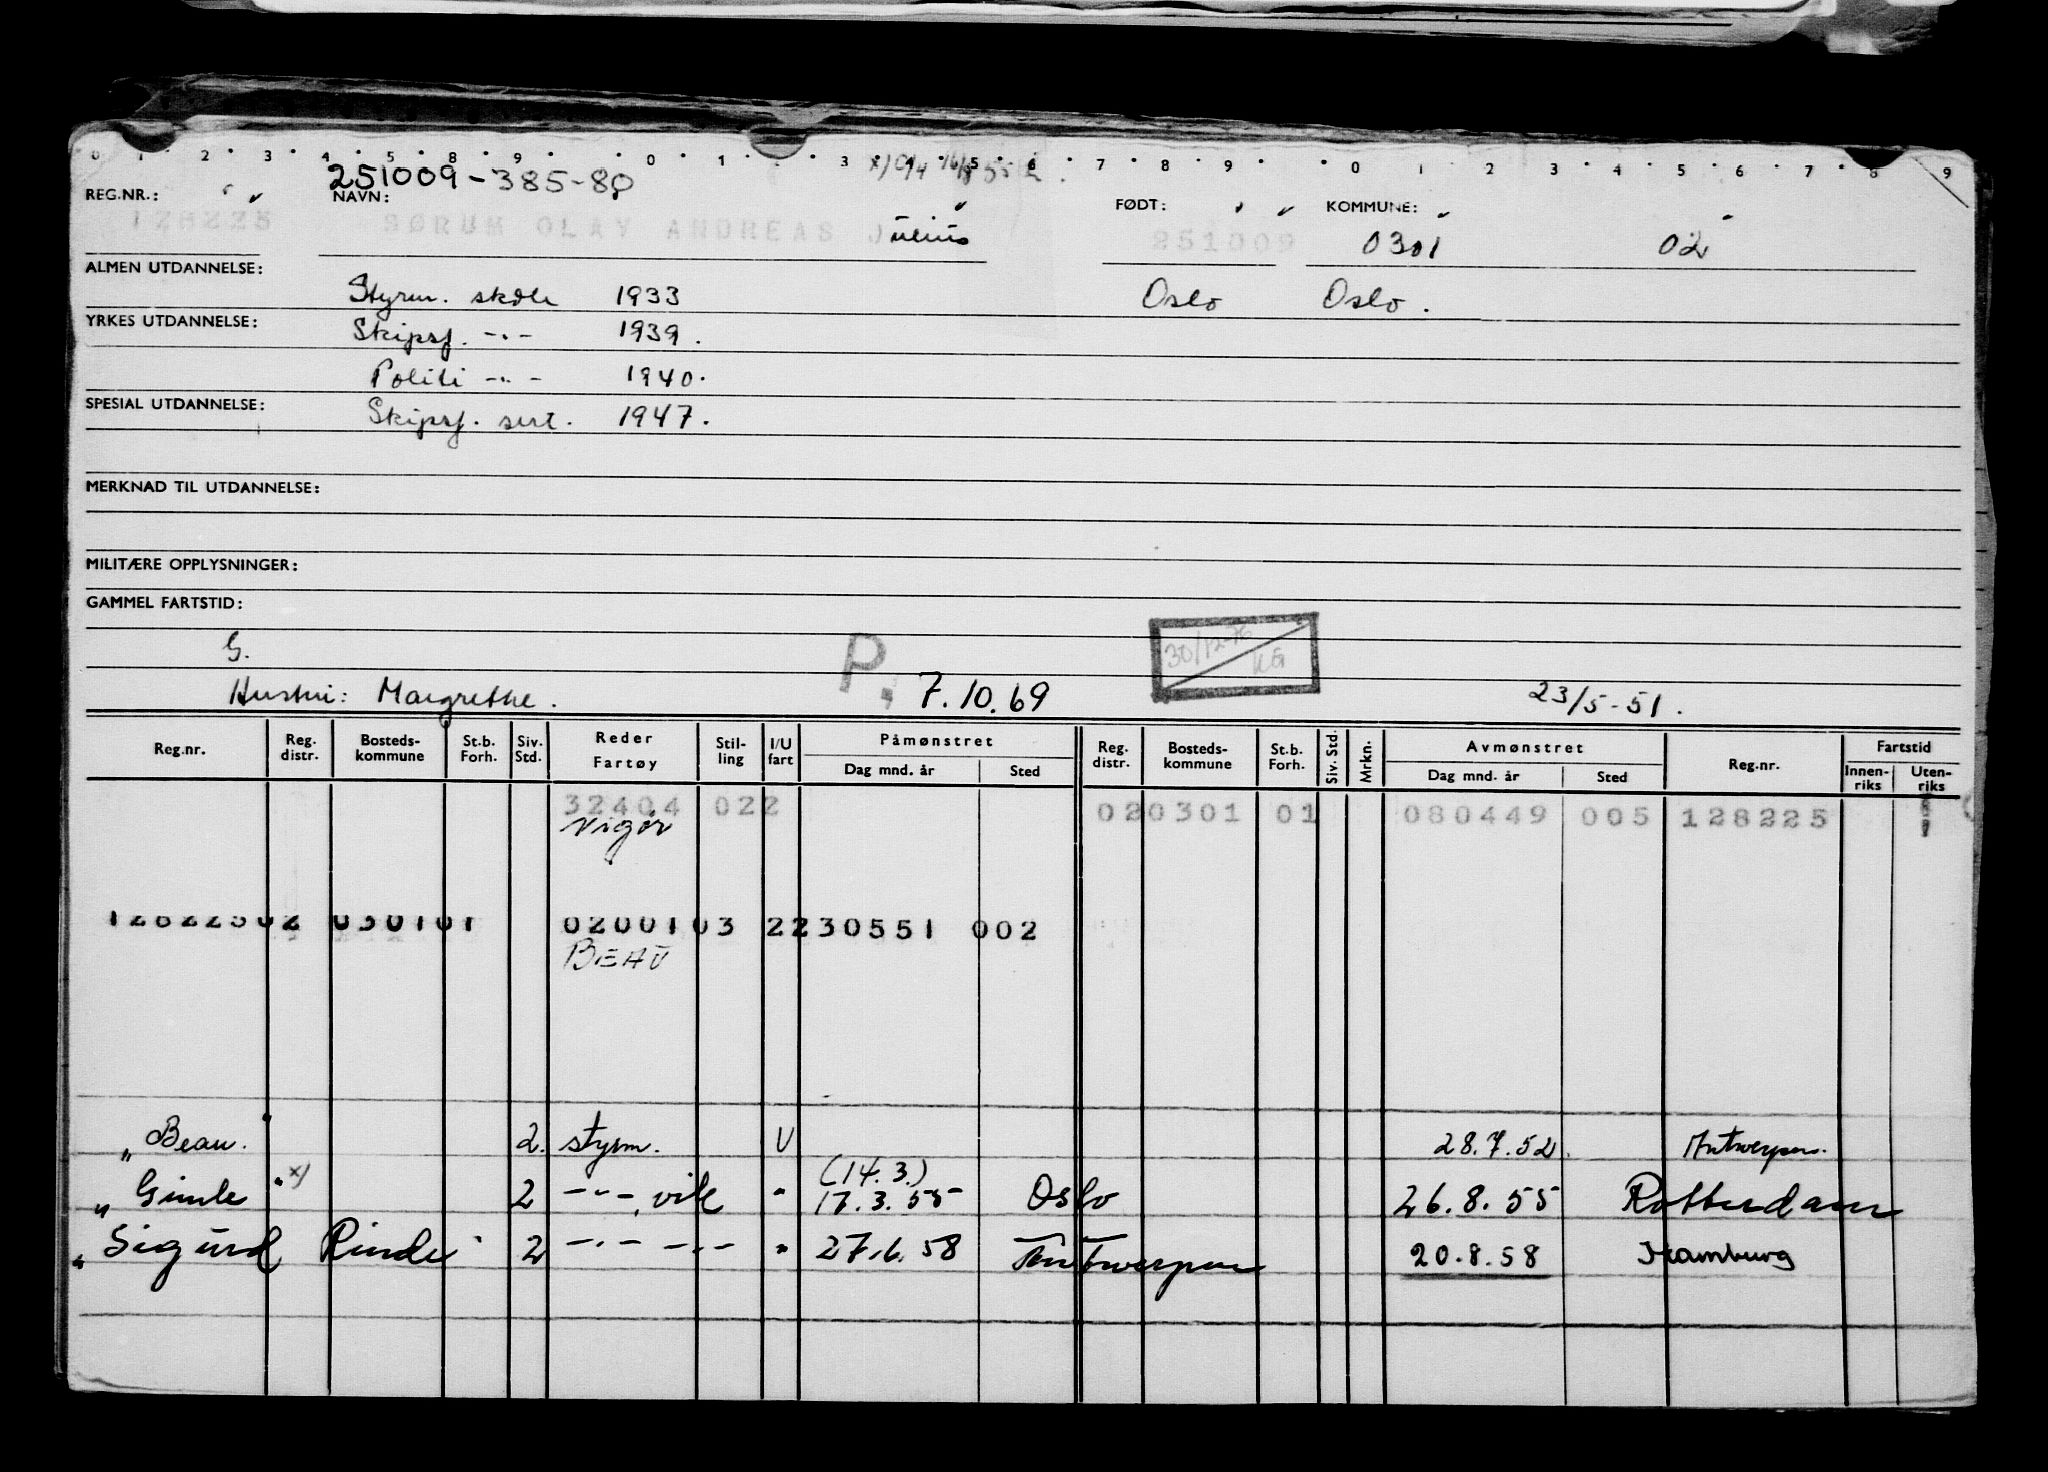 0 1 2 3 4 5 8 9 0 1 3 4 5 6 7 8 9 0 1 2 3 4 5 6 7 8 9
251009-385-80
REG.NR.: NAVN: FØDT: KOMMUNE:
128225 SØRUM OLAV ANDREAS Julius 251009 0301 02
ALMEN UTDANNELSE:
Styrm. skole 1933 Oslo Oslo.
YRKES UTDANNELSE:
Skipsf. -"- 1939.
Politi -"- 1940.
SPESIAL UTDANNELSE:
Skipsf. sert. 1947.
MERKNAD TIL UTDANNELSE:
MILITÆRE OPPLYSNINGER:
GAMMEL FARTSTID:
G. P. 30/12-76 KG
Hustru: Margrethe. 7.10.69 23/5-51.
Reg.nr. Reg. distr. Bosteds-kommune St.b. Forh. Siv. Std. Reder Fartøy Stil-ling I/U fart Påmønstret Dag mnd. år Sted Reg. distr. Bosteds-kommune St.b. Forh. Siv. Std. Mrkn. Avmønstret Dag mnd. år Sted Reg.nr. Fartstid Innen-riks Uten-riks
32404 022 020301 01 080449 005 128225
Vigør
12822502 030101 0200103 2230551 002
BEAU
"Beau." 2. styrm. U 28.7.52. Antwerpen.
(14.3.)
"Gimle" x) 2 -"-, vik " 17.3.55 Oslo 26.8.55 Rotterdam
"Sigurd Rinde" 2 -"- -"- " 27.6.58 Antwerpen 20.8.58 Hamburg